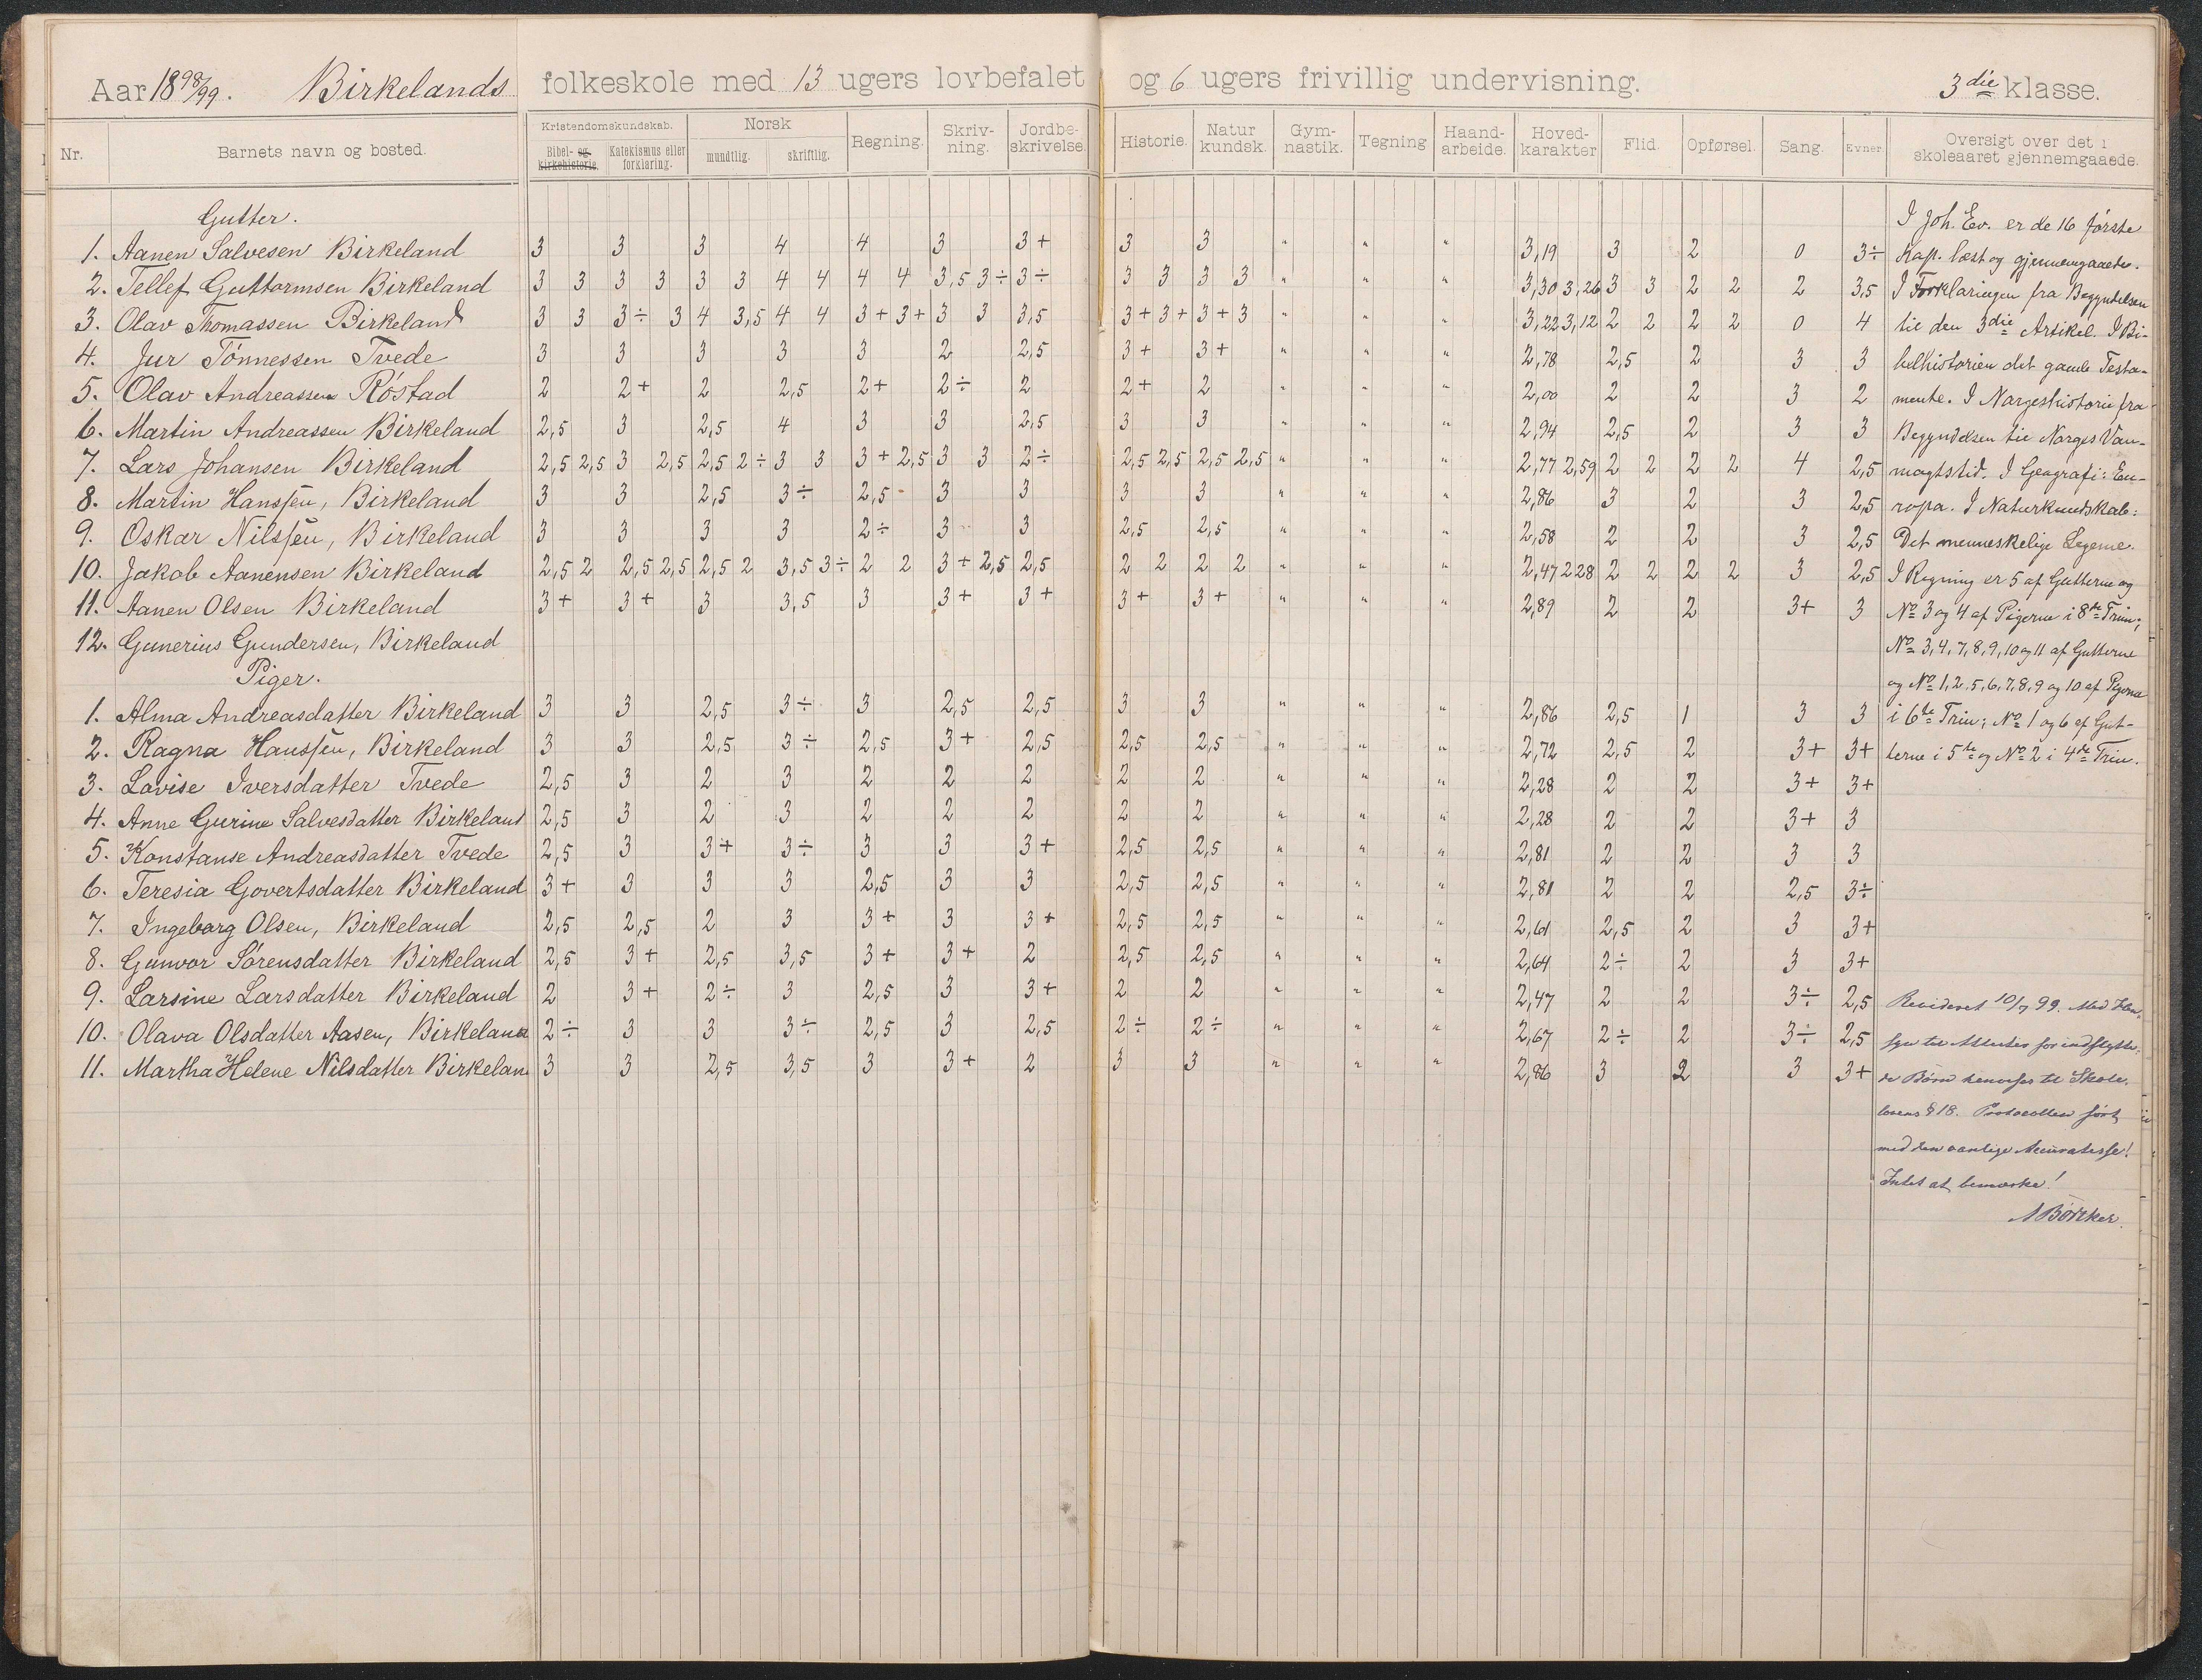 Aar 1898/99. Birkelands folkeskole med 13 ugers lovbefalet og 6 ugers frivillig undervisning. 3die klasse.
Nr. Barnets navn og bosted. Kristendomskundskab. Bibel- og kirkehistorie. Katekismus eller forklaring. Norsk mundtlig. skriftlig. Regning. Skriv-ning. Jordbe-skrivelse. Historie. Natur kundsk. Gym-nastik. Tegning Haand-arbeide. Hoved-karakter Flid. Opførsel. Sang. Evner. Oversigt over det i skoleaaret gjennemgaaede.
Gutter.
1. Aanen Salvesen Birkeland 3 3 3 4 4 3 3+ 3 3 " " " 3,19 3 2 0 3÷
2. Tellef Guttormsen Birkeland 3 3 3 3 3 3 4 4 4 4 3,5 3÷ 3÷ 3 3 3 3 " " " 3,30 3,26 3 3 2 2 2 3,5
3. Olav Thomassen Birkeland 3 3 3÷ 3 4 3,5 4 4 3+ 3+ 3 3 3,5 3+ 3+ 3+ 3 " " " 3,22 3,12 2 2 2 2 0 4
4. Jur Tönnessen Tvede 3 3 3 3 3 2 2,5 3+ 3+ " " " 2,78 2,5 2 3 3
5. Olav Andreassen Röstad 2 2+ 2 2,5 2+ 2÷ 2 2+ 2 " " " 2,00 2 2 3 2
6. Martin Andreassen Birkeland 2,5 3 2,5 4 3 3 2,5 3 3 " " " 2,94 2,5 2 3 3
7. Lars Johansen Birkeland 2,5 2,5 3 2,5 2,5 2÷ 3 3 3+ 2,5 3 3 2÷ 2,5 2,5 2,5 2,5 " " " 2,77 2,59 2 2 2 2 4 2,5
8. Martin Hanssen, Birkeland 3 3 2,5 3÷ 2,5 3 3 3 3 " " " 2,86 3 2 3 2,5
9. Oskar Nilssen, Birkeland 3 3 3 3 2÷ 3 3 2,5 2,5 " " " 2,58 2 2 3 2,5
10. Jakob Aanensen Birkeland 2,5 2 2,5 2,5 2,5 2 3,5 3÷ 2 2 3+ 2,5 2,5 2 2 2 2 " " " 2,47 2,28 2 2 2 2 3 2,5
11. Aanen Olsen Birkeland 3+ 3+ 3 3,5 3 3+ 3+ 3+ 3+ " " " 2,89 2 2 3+ 3
12. Gunerius Gundersen, Birkeland
Piger.
1. Alma Andreasdatter Birkeland 3 3 2,5 3÷ 3 2,5 2,5 3 3 " " " 2,86 2,5 1 3 3
2. Ragna Hanssen, Birkeland 3 3 2,5 3÷ 2,5 3+ 2,5 2,5 2,5 " " " 2,72 2,5 2 3+ 3+
3. Lovise Iversdatter Tvede 2,5 3 2 3 2 2 2 2 2 " " " 2,28 2 2 3+ 3+
4. Anne Gurine Salvesdatter Birkeland 2,5 3 2 3 2 2 2 2 2 " " " 2,28 2 2 3+ 3
5. Konstanse Andreasdatter Tvede 2,5 3 3+ 3÷ 3 3 3+ 2,5 2,5 " " " 2,81 2 2 3 3
6. Teresia Govertsdatter Birkeland 3+ 3 3 3 2,5 3 3 2,5 2,5 " " " 2,81 2 2 2,5 3÷
7. Ingeborg Olsen, Birkeland 2,5 2,5 2 3 3+ 3 3+ 2,5 2,5 " " " 2,61 2,5 2 3 3+
8. Gunvor Sörensdatter Birkeland 2,5 3+ 2,5 3,5 3+ 3+ 2 2,5 2,5 " " " 2,64 2÷ 2 3 3+
9. Larsine Larsdatter Birkeland 2 3+ 2÷ 3 2,5 3 3+ 2 2 " " " 2,47 2 2 3÷ 2,5
10. Olava Olsdatter Aasen, Birkeland 2÷ 3 3 3÷ 2,5 3 2,5 2÷ 2÷ " " " 2,67 2÷ 2 3÷ 2,5
11. Martha Helene Nilsdatter Birkeland 3 3 2,5 3,5 3 3+ 2 3 3 " " " 2,86 3 2 3 3+
I Joh. Ev. er de 16 første
Kap. læst og gjennemgaaede.
I Forklaringen fra Begyndelsen
til den 3die Artikel. I Bi-
belhistorien det gamle Testa-
mente. I Norgeshistorie fra
Begyndelsen til Norges Van-
magtstid. I Geografi: Eu-
ropa. I Naturkundskab:
Det menneskelige Legeme.
I Regning er 5 af Gutterne og
No 3 og 4 af Pigerne i 8de Trin;
No 3, 4, 7, 8, 9, 10 og 11 af Gutterne
og No 1, 2, 5, 6, 7, 8, 9 og 10 af Pigerne
i 6te Trin; No 1 og 6 af Gut-
terne i 5te og No 2 i 4de Trin.
Revideret 10/7 99. Med Hen-
syn til Attester for indflytte-
de Børn henvises til Skole-
lovens § 18. Protocollen ført
med den vanlige Accuratesse!
Intet at bemærke!